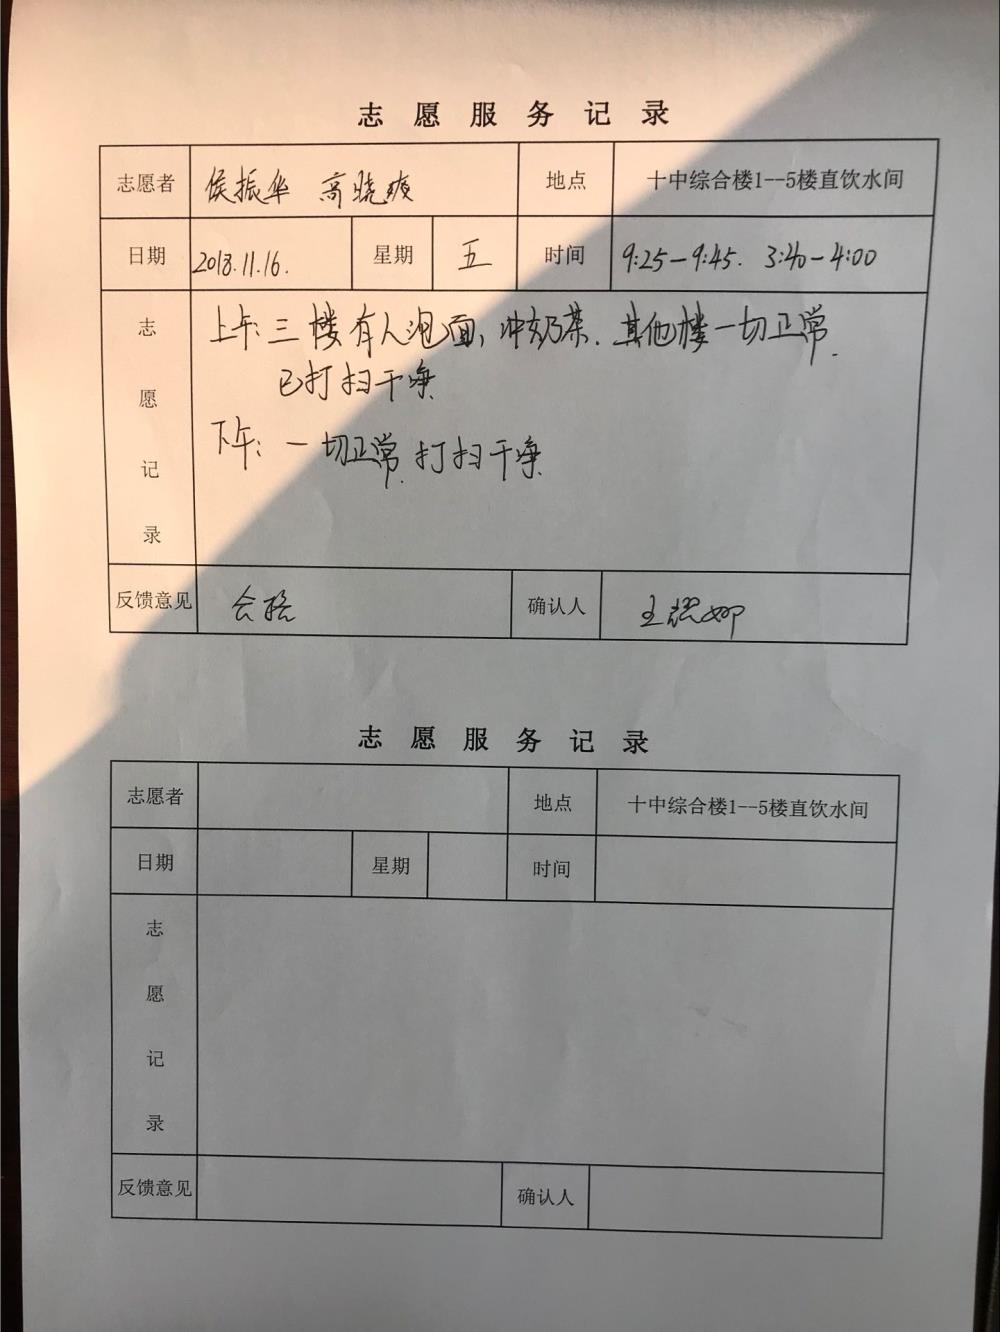 志愿服务记录
志愿者 侯振华 高晓爽 地点 十中综合楼1--5楼直饮水间
日期 2018.11.16. 星期 五 时间 9:25-9:45. 3:40-4:00
志愿记录
上午:三楼有人泡面,冲奶茶.其他楼一切正常.
已打扫干净
下午:一切正常.打扫干净
反馈意见 合格 确认人 王
志愿服务记录
志愿者 地点 十中综合楼1--5楼直饮水间
日期 星期 时间
志愿记录
反馈意见 确认人